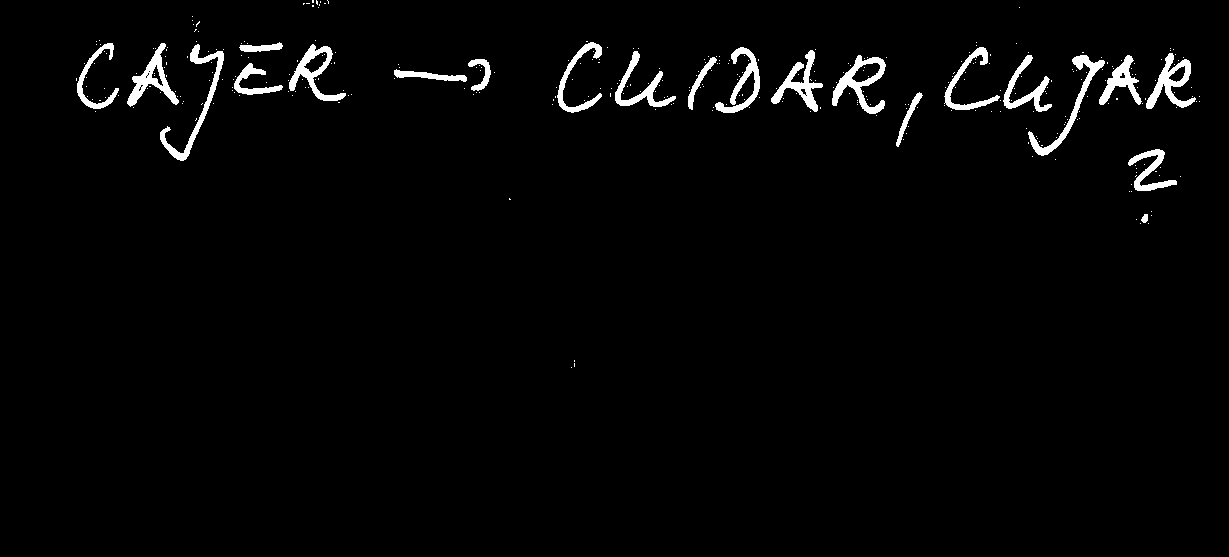 CAYER → CUIDAR, CUYAR
?